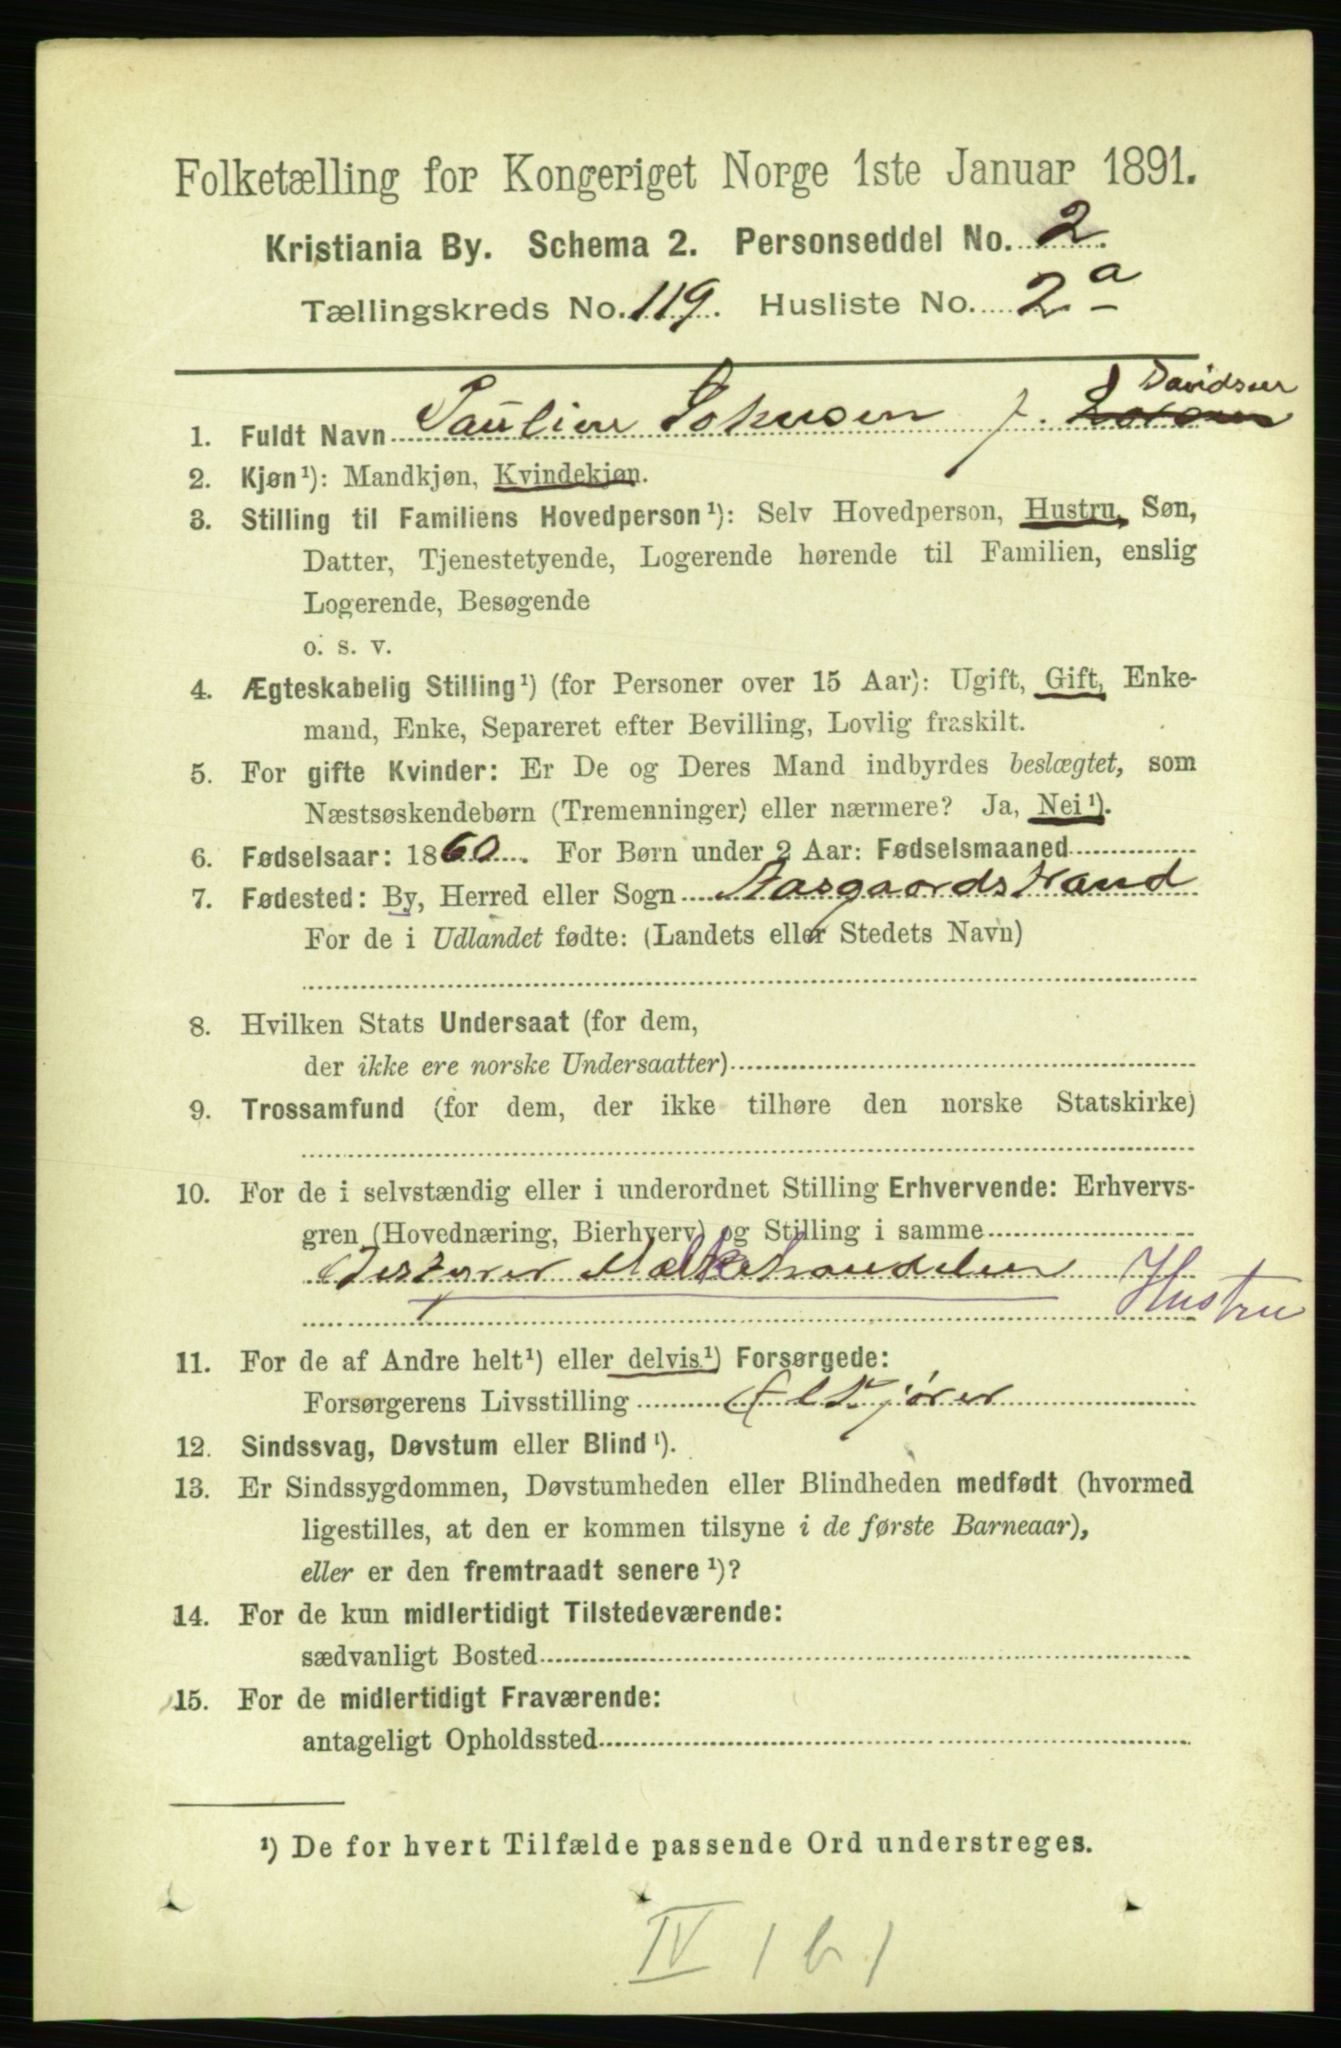 Folketælling for Kongeriget Norge 1ste Januar 1891.
Kristiania By. Schema 2. Personseddel No. 2.
Tællingskreds No. 119. Husliste No. 2a
Davidsen
1. Fuldt Navn Pauline Johnsen f.
2. Kjøn¹): Mandkjøn, Kvindekjøn.
3. Stilling til Familiens Hovedperson¹): Selv Hovedperson, Hustru, Søn,
Datter, Tjenestetyende, Logerende hørende til Familien, enslig
Logerende, Besøgende
o. s. v.
4. Ægteskabelig Stilling¹) (for Personer over 15 Aar): Ugift, Gift, Enke-
mand, Enke, Separeret efter Bevilling, Lovlig fraskilt.
5. For gifte Kvinder: Er De og Deres Mand indbyrdes beslægtet, som
Næstsøskendebørn (Tremenninger) eller nærmere? Ja, Nei¹).
6. Fødselsaar: 1860. For Børn under 2 Aar: Fødselsmaaned
7. Fødested: By, Herred eller Sogn Aasgaardstrand
For de i Udlandet fødte: (Landets eller Stedets Navn)
8. Hvilken Stats Undersaat (for dem,
der ikke ere norske Undersaatter)
9. Trossamfund (for dem, der ikke tilhøre den norske Statskirke)
10. For de i selvstændig eller i underordnet Stilling Erhvervende: Erhvervs-
gren (Hovednæring, Bierhverv) og Stilling i samme
Bestyrer Melkehandelen Hustru
11. For de af Andre helt¹) eller delvis¹) Forsørgede:
Forsørgerens Livsstilling
12. Sindssvag, Døvstum eller Blind¹).
13. Er Sindssygdommen, Døvstumheden eller Blindheden medfødt (hvormed
ligestilles, at den er kommen tilsyne i de første Barneaar),
eller er den fremtraadt senere¹)?
14. For de kun midlertidigt Tilstedeværende:
sædvanligt Bosted
15. For de midlertidigt Fraværende:
antageligt Opholdssted
¹) De for hvert Tilfælde passende Ord understreges.
IV 1 b 1